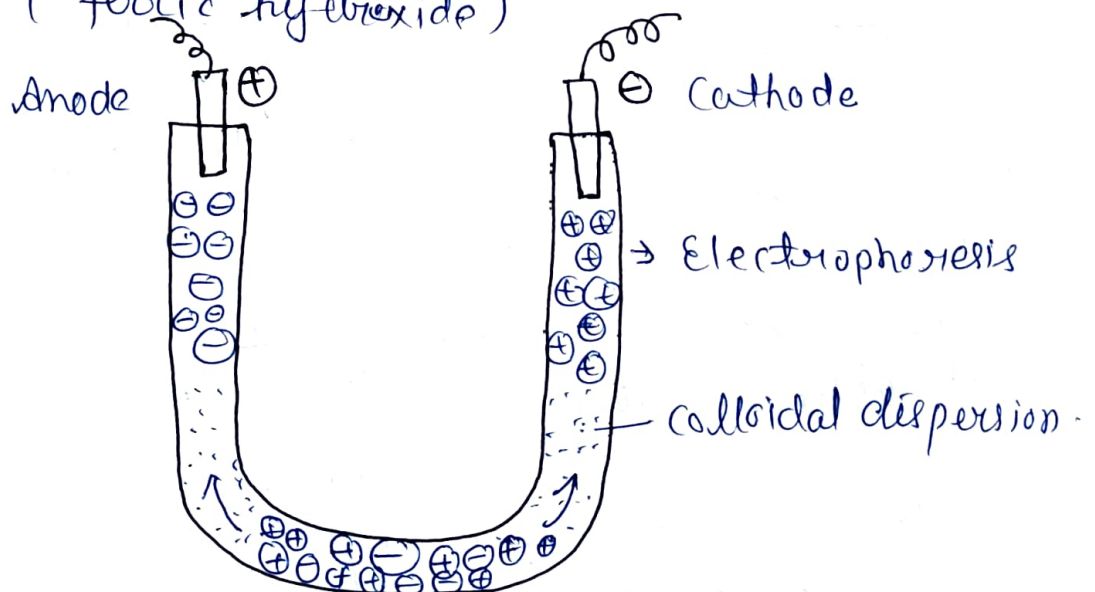 hydroxide)
Anode ⊕
⊖ Cathode
→ Electrophoresis
Colloidal dispersion.